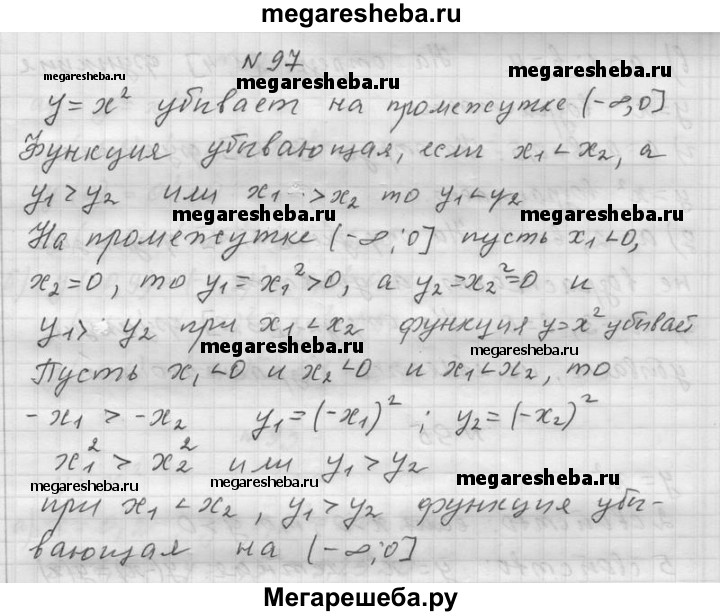 megaresheba.ru
N 97
megaresheba.ru megaresheba.ru
y = x² убывает на промежутке (-∞;0]
Функция убывающая, если x₁ < x₂, а
y₁ > y₂ или x₁ > x₂ то y₁ < y₂
megaresheba.ru megaresheba.ru
На промежутке (-∞;0] пусть x₁ < 0,
x₂ = 0, то y₁ = x₁² > 0, а y₂ = x₂² = 0 и
y₁ > y₂ при x₁ < x₂ функция y = x² убывает
megaresheba.ru megaresheba.ru
Пусть x₁ < 0 и x₂ < 0 и x₁ < x₂, то
-x₁ > -x₂ y₁ = (-x₁)² ; y₂ = (-x₂)²
x₁² > x₂² или y₁ > y₂
megaresheba.ru megaresheba.ru megaresheba.ru
при x₁ < x₂, y₁ > y₂ функция убы-
вающая на (-∞;0]
Мегарешеба.ру